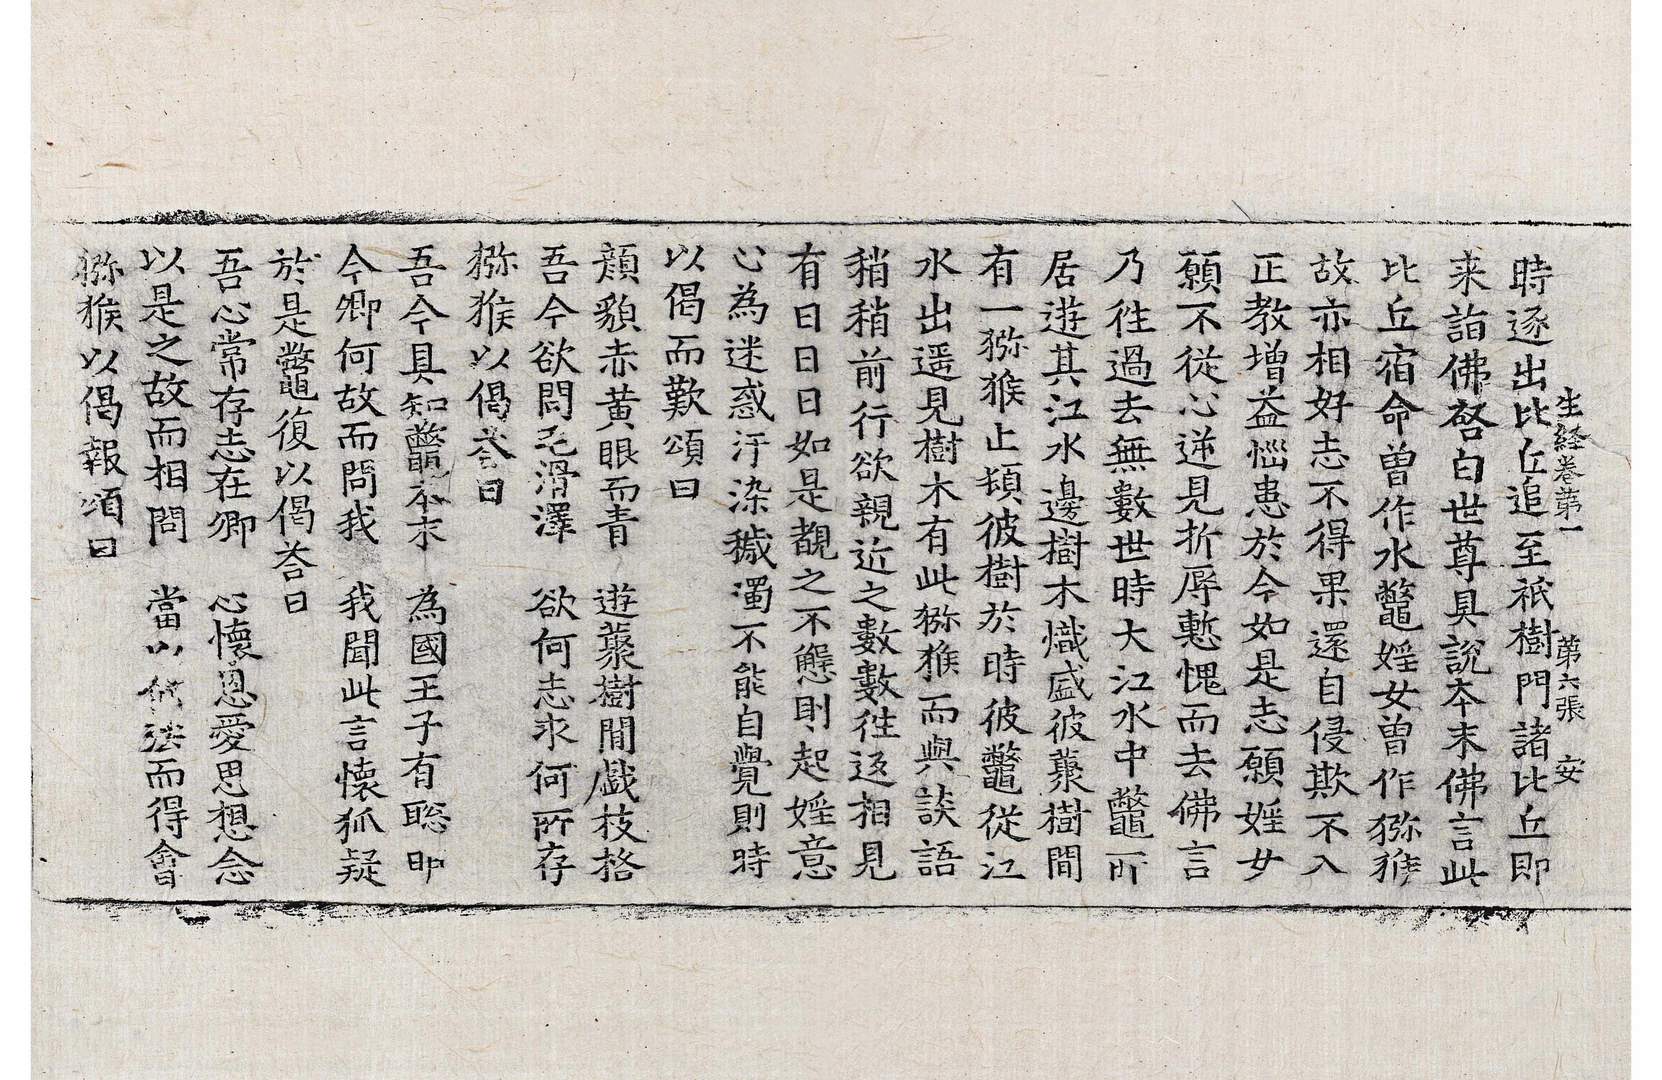 生経卷第一 第六張 安
時逐出比丘追至祇樹門諸比丘即
来詣佛啓白世尊具說本末佛言此
比丘宿命曽作水鼈婬女曽作猕猴
故亦相好志不得果還自侵欺不入
正教增益惱患於今如是志願婬女
願不從心逆見折辱慙愧而去佛言
乃徃過去無數世時大江水中鼈所
居遊其江水邊樹木熾盛彼藂樹間
有一猕猴止頓彼樹於時彼鼈從江
水出遥見樹木有此猕猴而與談語
稍稍前行欲親近之數數徃返相見
有日日日日如是覩之不懈則起婬意
心為迷惑汙染穢濁不能自覺則時
以偈而歎頌曰
顏貌赤黃眼而青 遊藂樹間戲枝格
吾今欲問毛滑澤 欲何志求何所存
猕猴以偈荅曰
吾今具知鼈本末 為國王子有聡明
今卿何故而問我 我聞此言懷狐疑
於是鼈復以偈荅曰
吾心常存志在卿 心懷恩愛思想念
以是之故而相問 當以 法而得會
猕猴以偈報頌曰